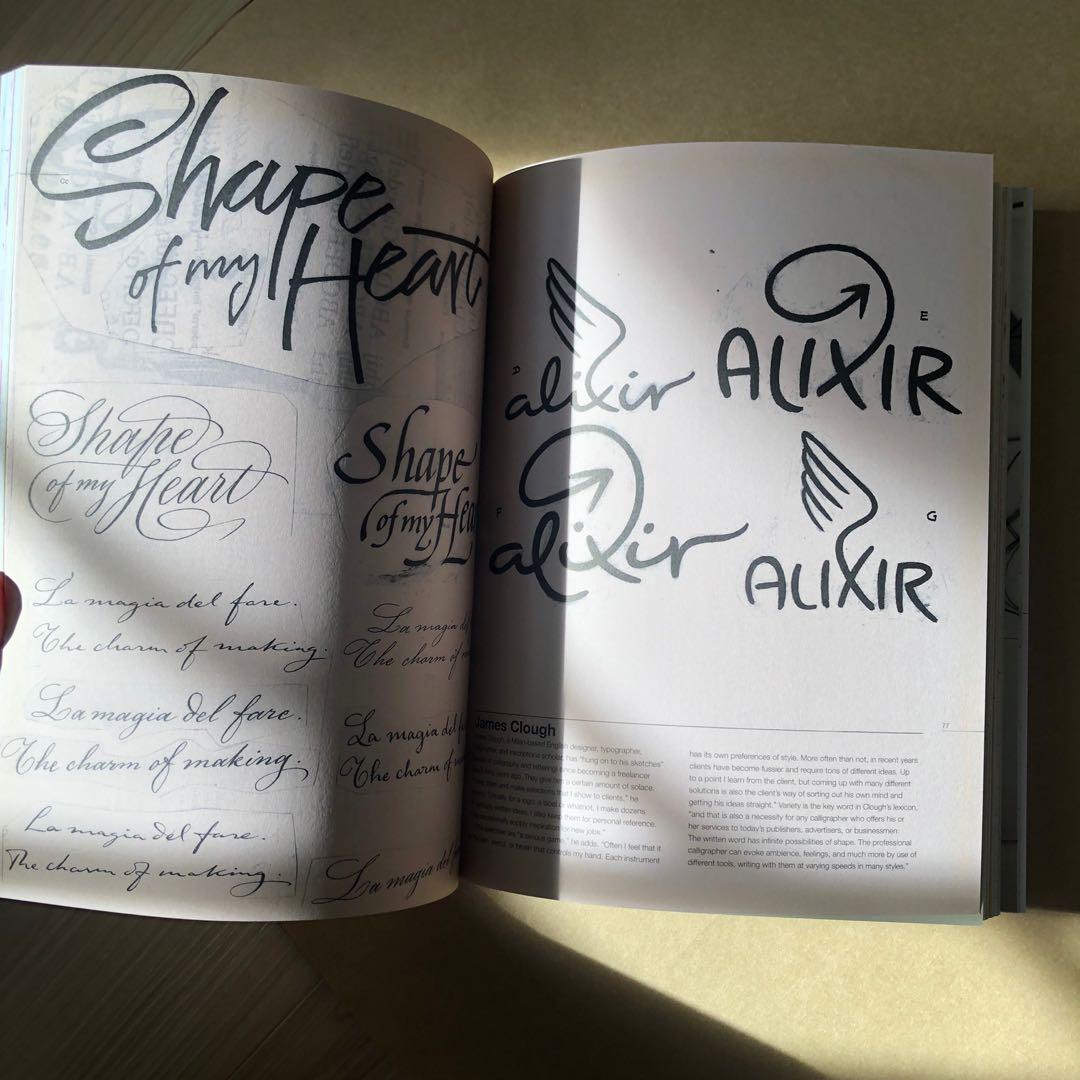 Cc
Shape
of my Heart
Shape
of my Heart
Shape
of my Hea
La magia del fare.
The charm of making.
La magia del fare.
The charm of making.
La magia del fare.
The charm of making.
La magia
The charm of
La magia del
The charm of
La magia del
A
alixir
E
ALIXIR
F
alixir
G
ALIXIR
77
James Clough
James Clough, a Milan-based English designer, typographer,
and inscriptions scholar, has "hung on to his sketches"
of calligraphy and lettering since becoming a freelancer
years ago. They give a certain amount of solace.
them and make selections that I show to clients," he
for a logo, a label or whatnot, I make dozens
written ideas. I also keep them for personal reference.
occasionally supply inspiration for new jobs."
exercise are "a serious game," he adds. "Often I feel that it
pen, or brush that controls my hand. Each instrument
has its own preferences of style. More often than not, in recent years
clients have become fussier and require tons of different ideas. Up
to a point I learn from the client, but coming up with many different
solutions is also the client's way of sorting out his own mind and
getting his ideas straight." Variety is the key word in Clough's lexicon,
"and that is also a necessity for any calligrapher who offers his or
her services to today's publishers, advertisers, or businessmen.
The written word has infinite possibilities of shape. The professional
calligrapher can evoke ambience, feelings, and much more by use of
different tools, writing with them at varying speeds in many styles."